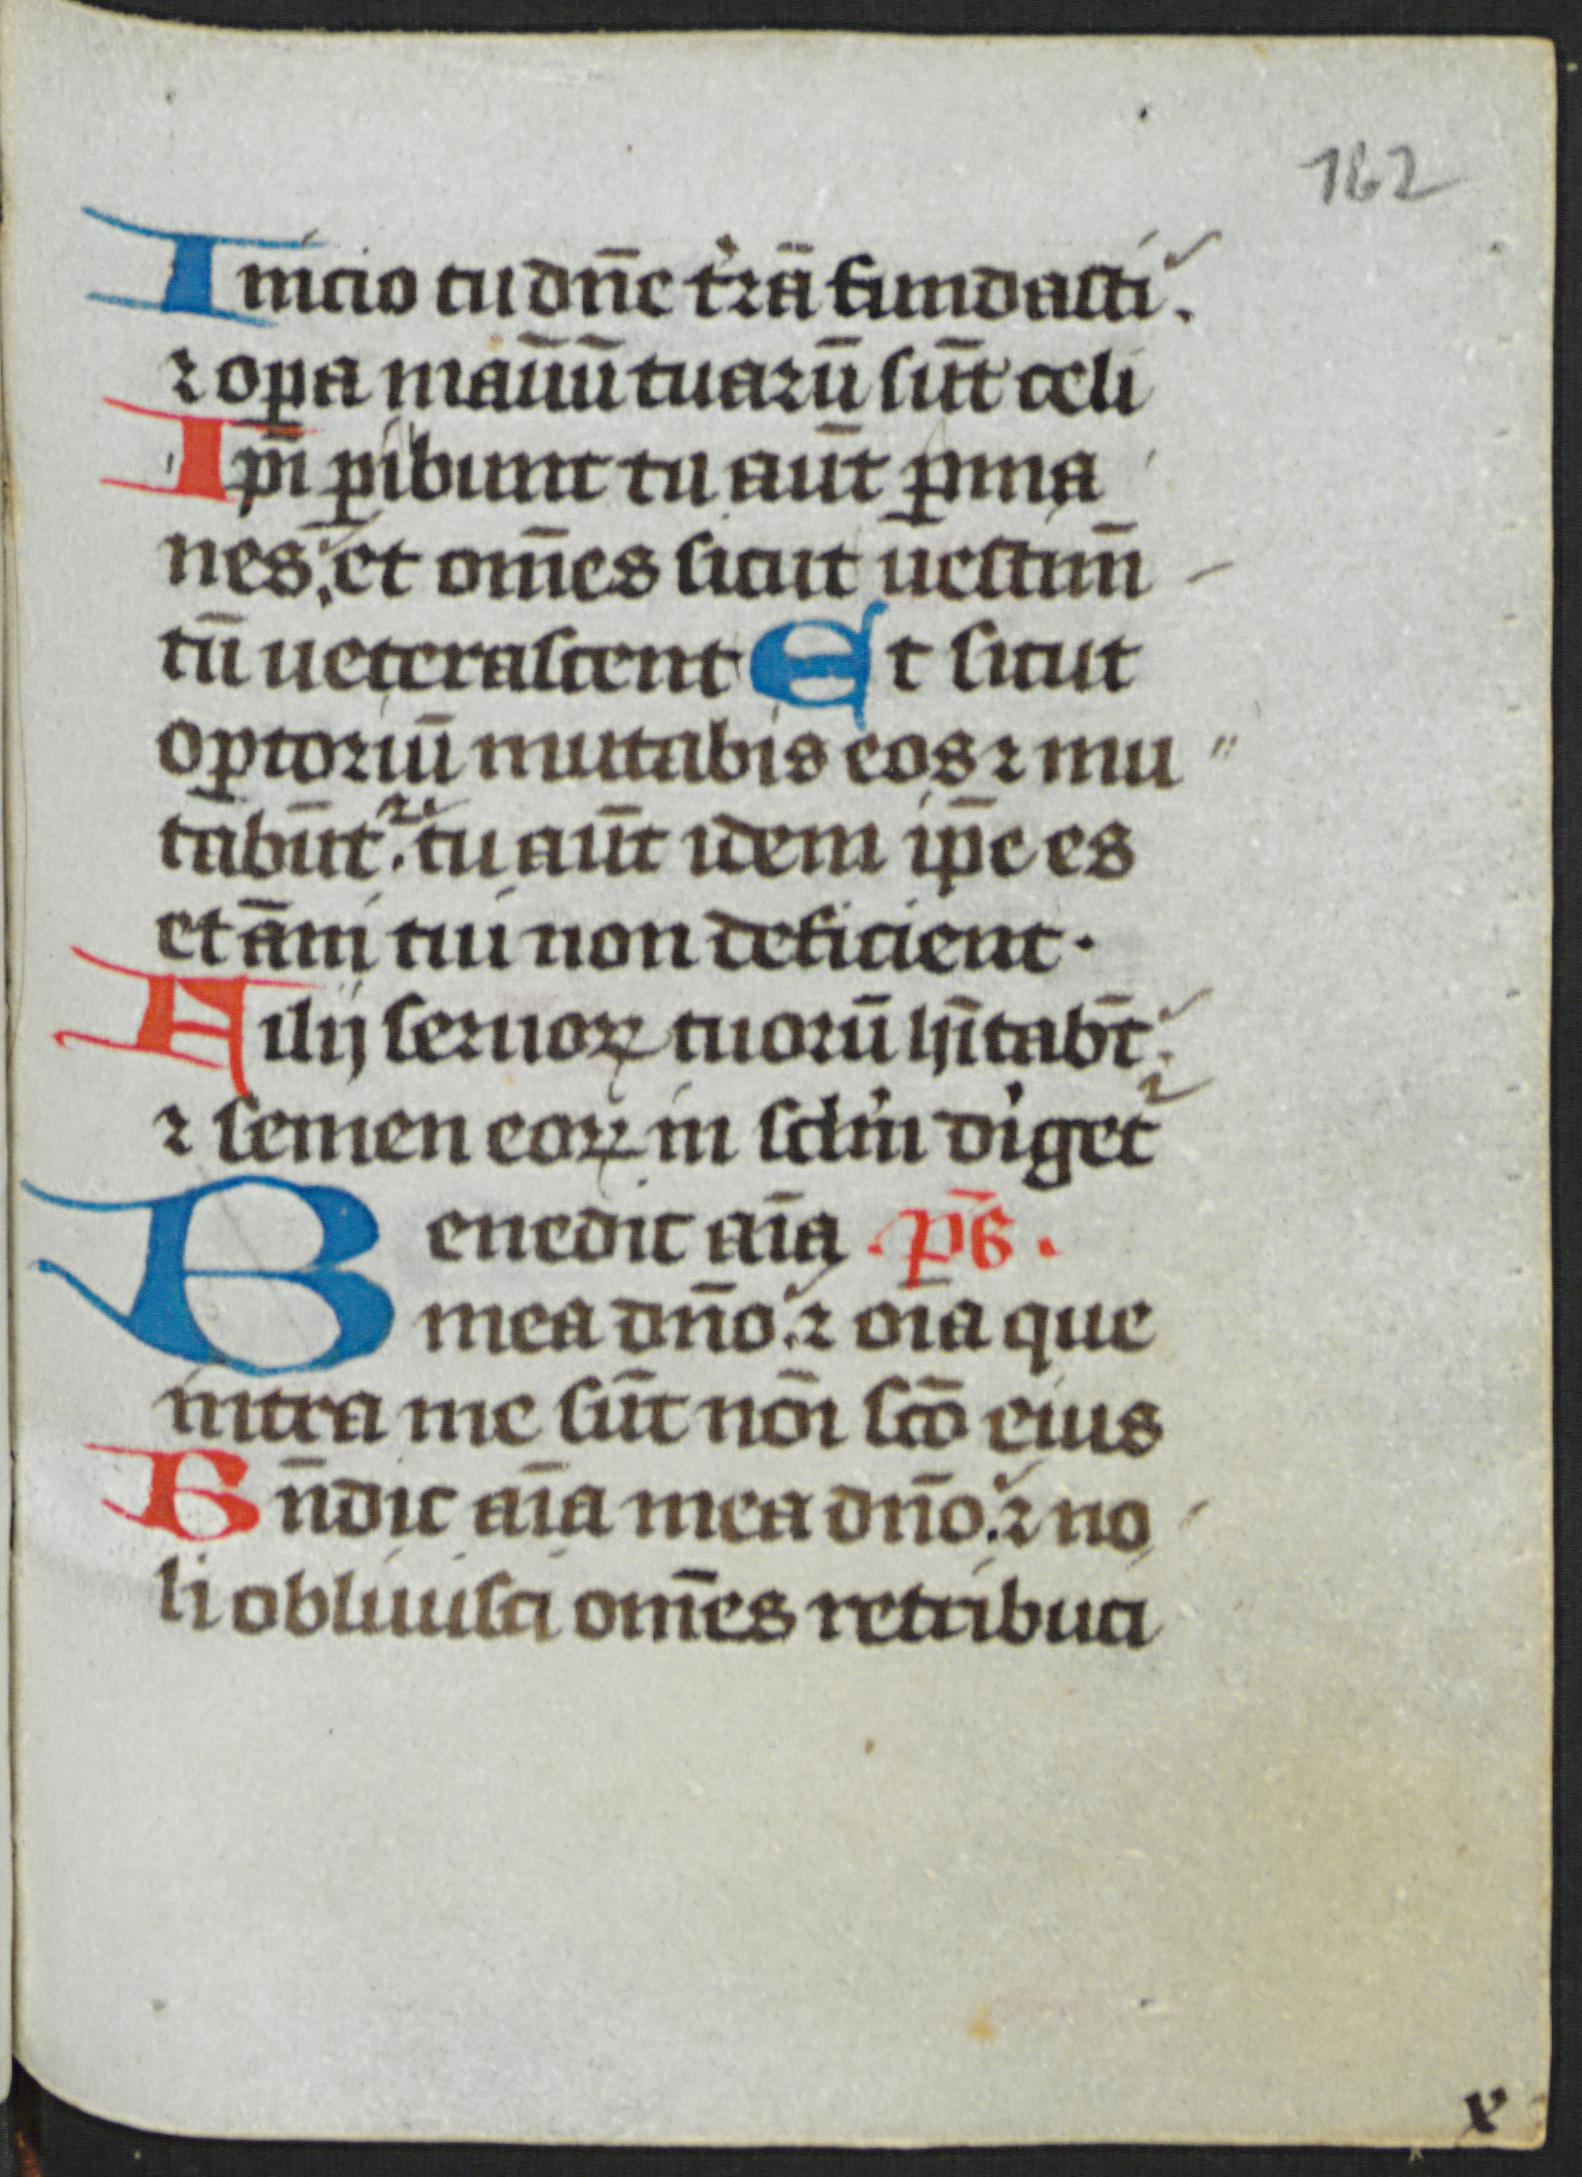 162
Inicio tu dn̄e t'rā fundasti.
⁊ op̲a mauū tuarū sūt celi
Ip̄i p̲ibunt tu aūt p̲ma
nes. et om̄es sicut uestim̄
tū ueterascent Et sicut
op̲toriū mutabis eos ⁊ mu
tabūt᷑. tu aūt idem ip̄e es
et āni tui non deficient.
Filij seruoꝝ tuorū hītab̄t.
⁊ semen eoꝝ in sc̄lm di'get᷑
Benedic aīa .ps̄.
mea dn̄o. ⁊ oīa que
intra me sūt nōi scō eius
Bn̄dic aīa mea dn̄o. ⁊ no
li obliuisci om̄es retribuci
x